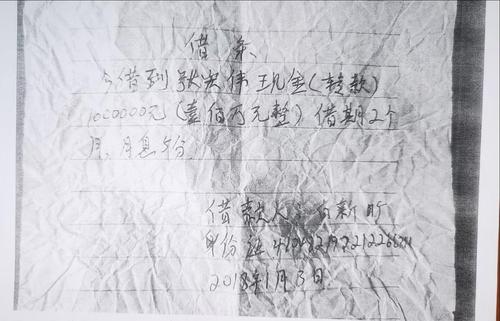 借条
今借到张宏伟现金(转款)
1000000元(壹佰万元整)借期2个
月,月息5分.
借款人:
身份证
2018年1月3日.